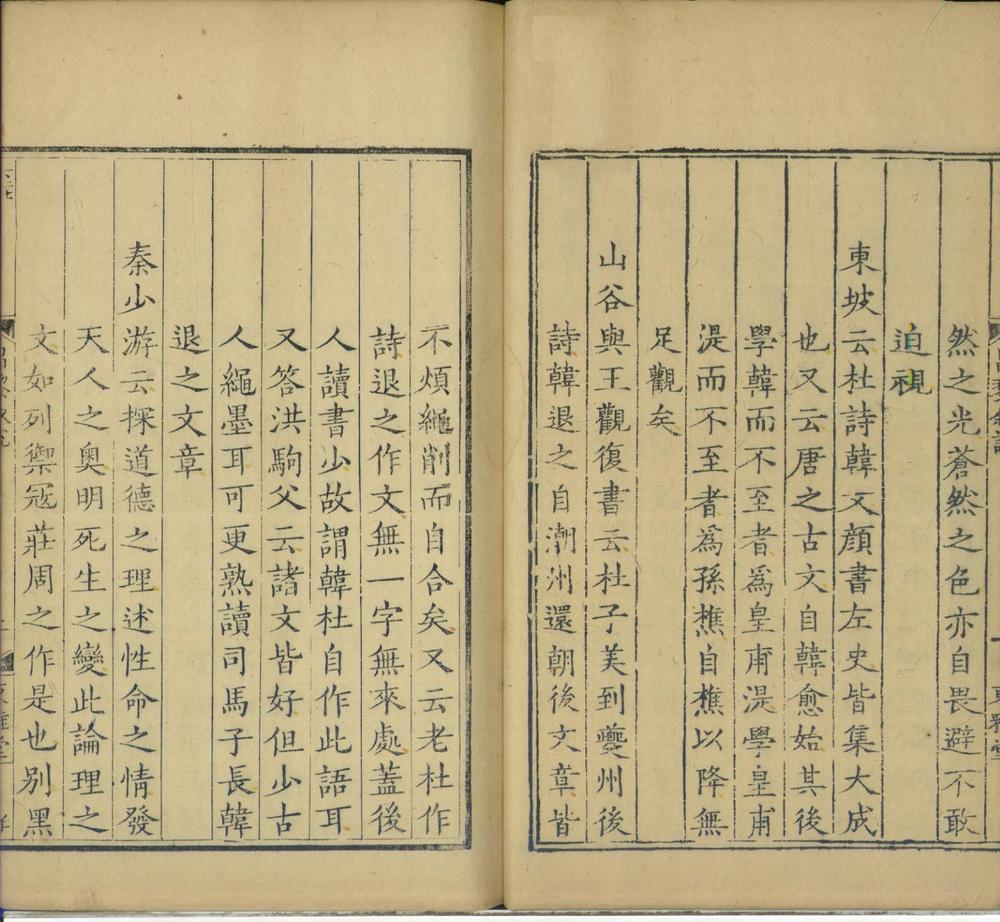 然之光蒼然之色亦自畏避不敢
迫視
東坡云杜詩韓文顔書左史皆集大成
也又云唐之古文自韓愈始其後
學韓而不至者爲皇甫湜學皇甫
湜而不至者爲孫樵自樵以降無
足觀矣
山谷與王觀復書云杜子美到夔州後
詩韓退之自潮州還朝後文章皆
不煩繩削而自合矣又云老杜作
詩退之作文無一字無來處蓋後
人讀書少故謂韓杜自作此語耳
又答洪駒父云諸文皆好但少古
人繩墨耳可更熟讀司馬子長韓
退之文章
秦少游云探道德之理述性命之情發
天人之奧明死生之變此論理之
文如列禦冦莊周之作是也别黑